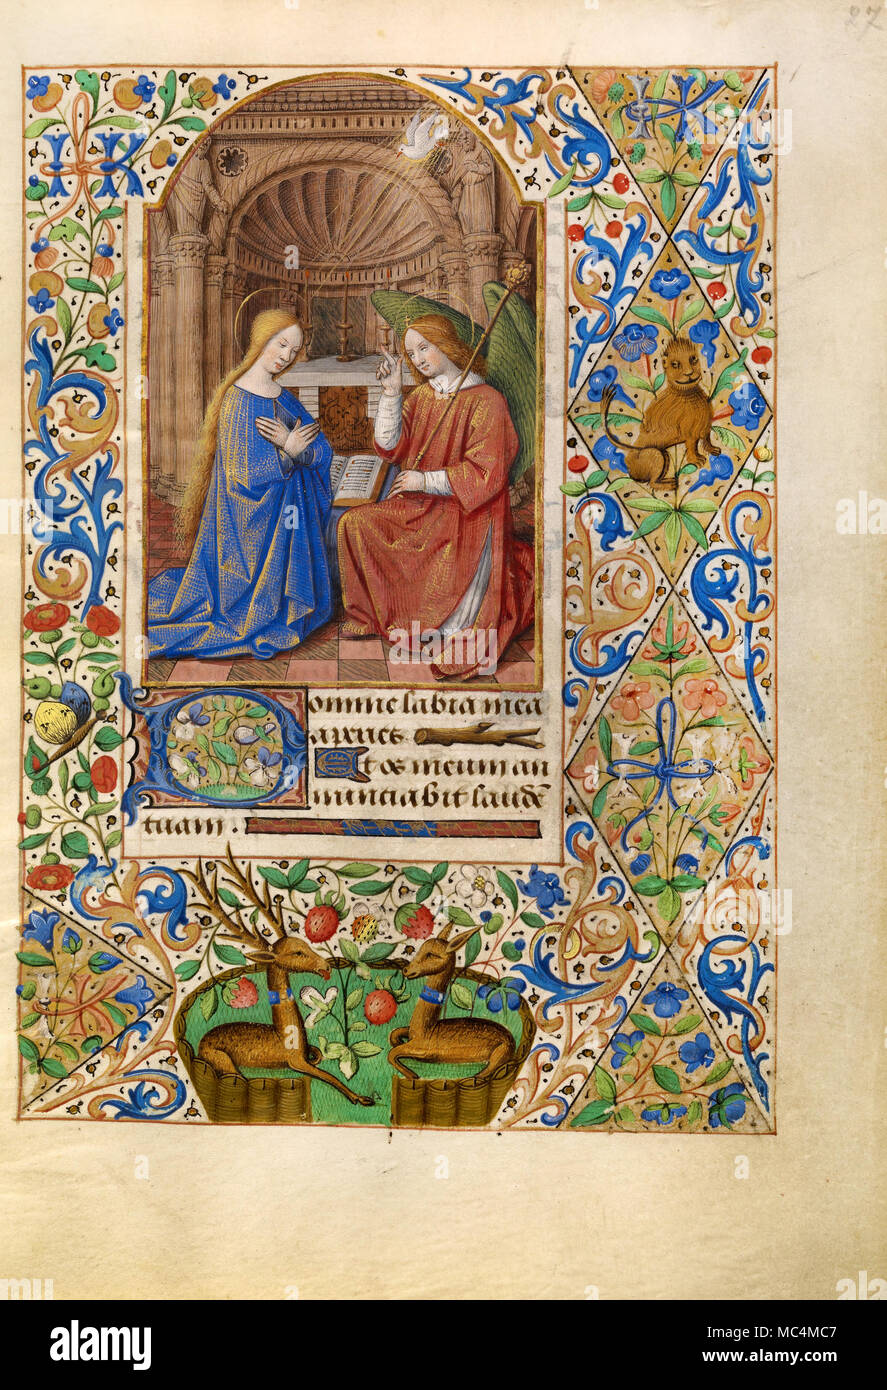 27
IK
IK
Domine labia mea
aperies.
Et os meum an
nunciabit laudē
tuam.
alamy
Image ID: MC4MC7
www.alamy.com